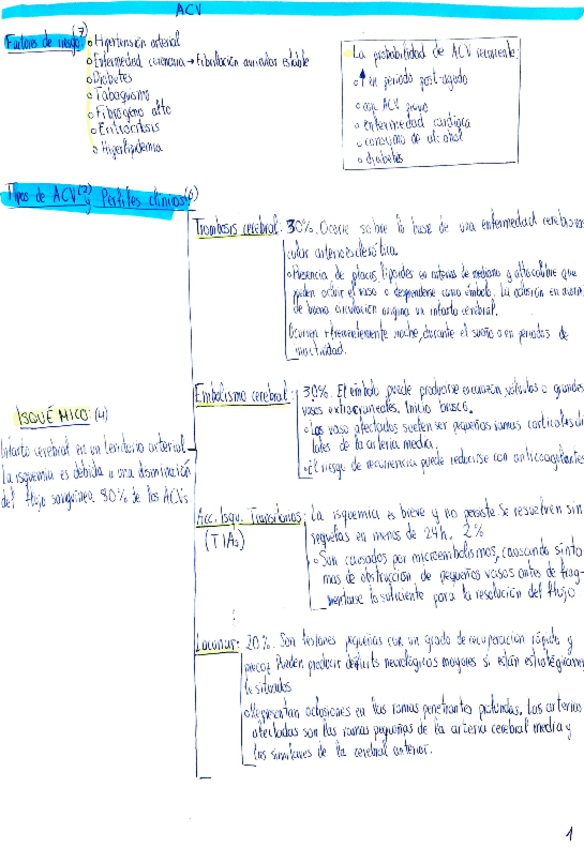 ACV
Factores de riesgo (7)
• Hipertensión arterial
• Enfermedad coronaria → Fibrilación auricular estable
• Diabetes
• Tabaquismo
• Fibrógeno alto
• Eritrocitosis
• Hiperlipidemia
La probabilidad de ACV recurrente:
• ↑ en periodo post-agudo
• ACV previo
• enfermedad cardiaca
• consumo de alcohol
• diabetes
Tipos de ACV (2) y Perfiles clínicos (6)
ISQUÉMICO: (4)
Infarto cerebral en un territorio arterial
La isquemia es debida a una disminución
del flujo sanguíneo. 80% de los ACVs
Trombosis cerebral: 30%. Ocurre sobre la base de una enfermedad cerebrovas
cular arterioesclerótica.
• Presencia de placas lipoides en arterias de mediano y alto calibre que
pueden ocluir el vaso o desprenderse como émbolo. La oclusión en
de buena circulación origina un infarto cerebral.
Ocurren + frecuentemente noche, durante el sueño o en periodos de
inactividad.
Embolismo cerebral: 30%. El émbolo puede producirse en corazón, válvulas o grandes
vasos extracraneales. Inicio brusco.
• Los vaso afectados suelen ser pequeñas ramas corticales di
tales de la arteria media.
• El riesgo de recurrencia puede reducirse con anticoagulantes
Acc. Isqu. Transitorios: La isquemia es breve y no persiste. Se resuelven sin
(TIAs)
secuelas en menos de 24h. 2%
• Son causados por microembolismos, causando sínto
mas de obstrucción de pequeños vasos antes de frag-
mentarse lo suficiente para la resolución del flujo.
Lacunar: 20%. Son lesiones pequeñas con un grado de recuperación rápido y
precoz. Pueden producir déficits neurológicos mayores si están estratégicamen
te situados
• Representan oclusiones en las ramas penetrantes profundas. Las arterias
afectadas son las ramas pequeñas de la arteria cerebral media y
las similares de la cerebral anterior.
1